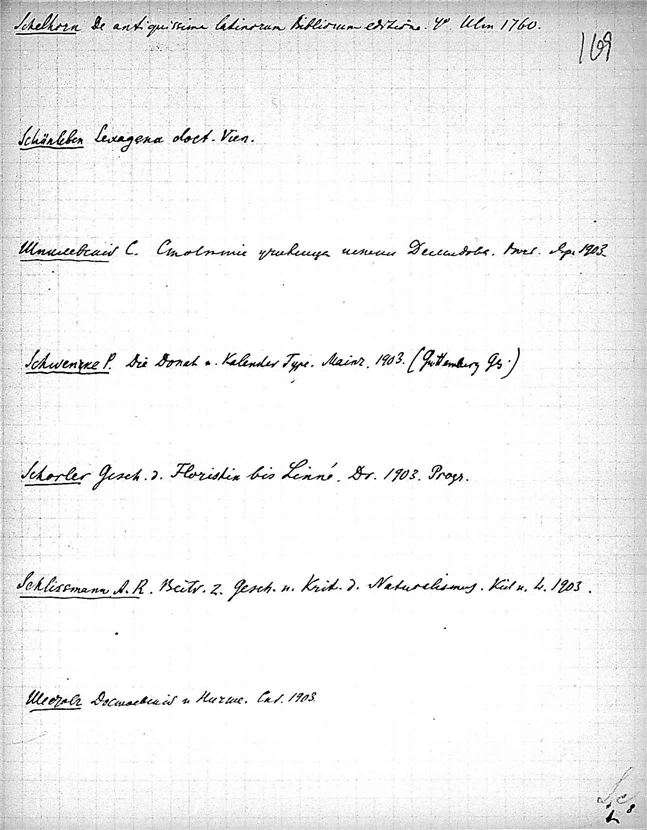 Schelhorn De antiquissima latinorum Bibliorum editione. 4º Ulm 1760.
169
Schönleben Sexagena doct. Vien.
Шпилевскiй С. Столѣтiе училища имени Демидова. Яр. 1903
Schwenke P. Die Donat u. Kalender Type. Mainz. 1903. (Guttemberg Gs.)
Schorler Gesch. d. Floristik bis Linné. Dr. 1903. Progr.
Schlissmann A. R. Beitr. z. Gesch. u. Krit. d. Naturalismus. Kiel u. L. 1903.
Достоевскiй и Ницше. Спб. 1903.